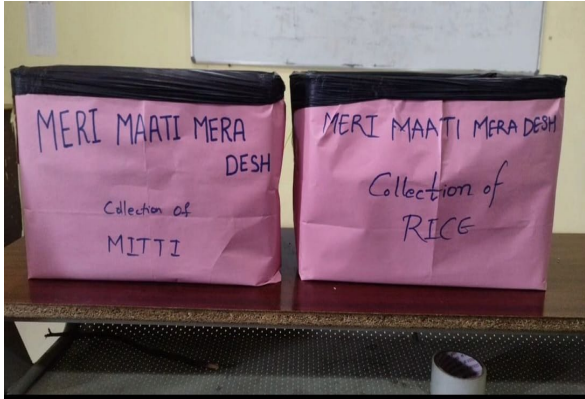 MERI MAATI MERA
DESH
Collection of
MITTI
MERI MAATI MERA DESH
Collection of
RICE